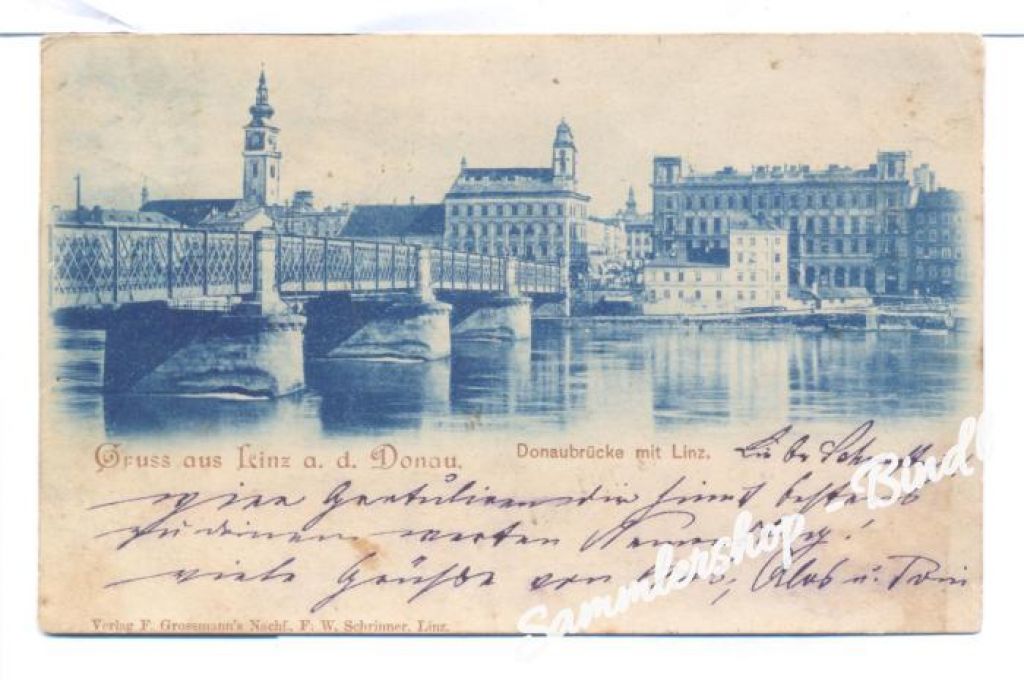 Gruss aus Linz a. d. Donau.
Donaubrücke mit Linz.
Liebe
wir Gratulieren dir hiemit bestens
zu deinem werten
viele Grüße von u. Toni
Verlag F. Grossmann's Nachf., F. W. Schrinner, Linz.
Sammlershop - Bindl